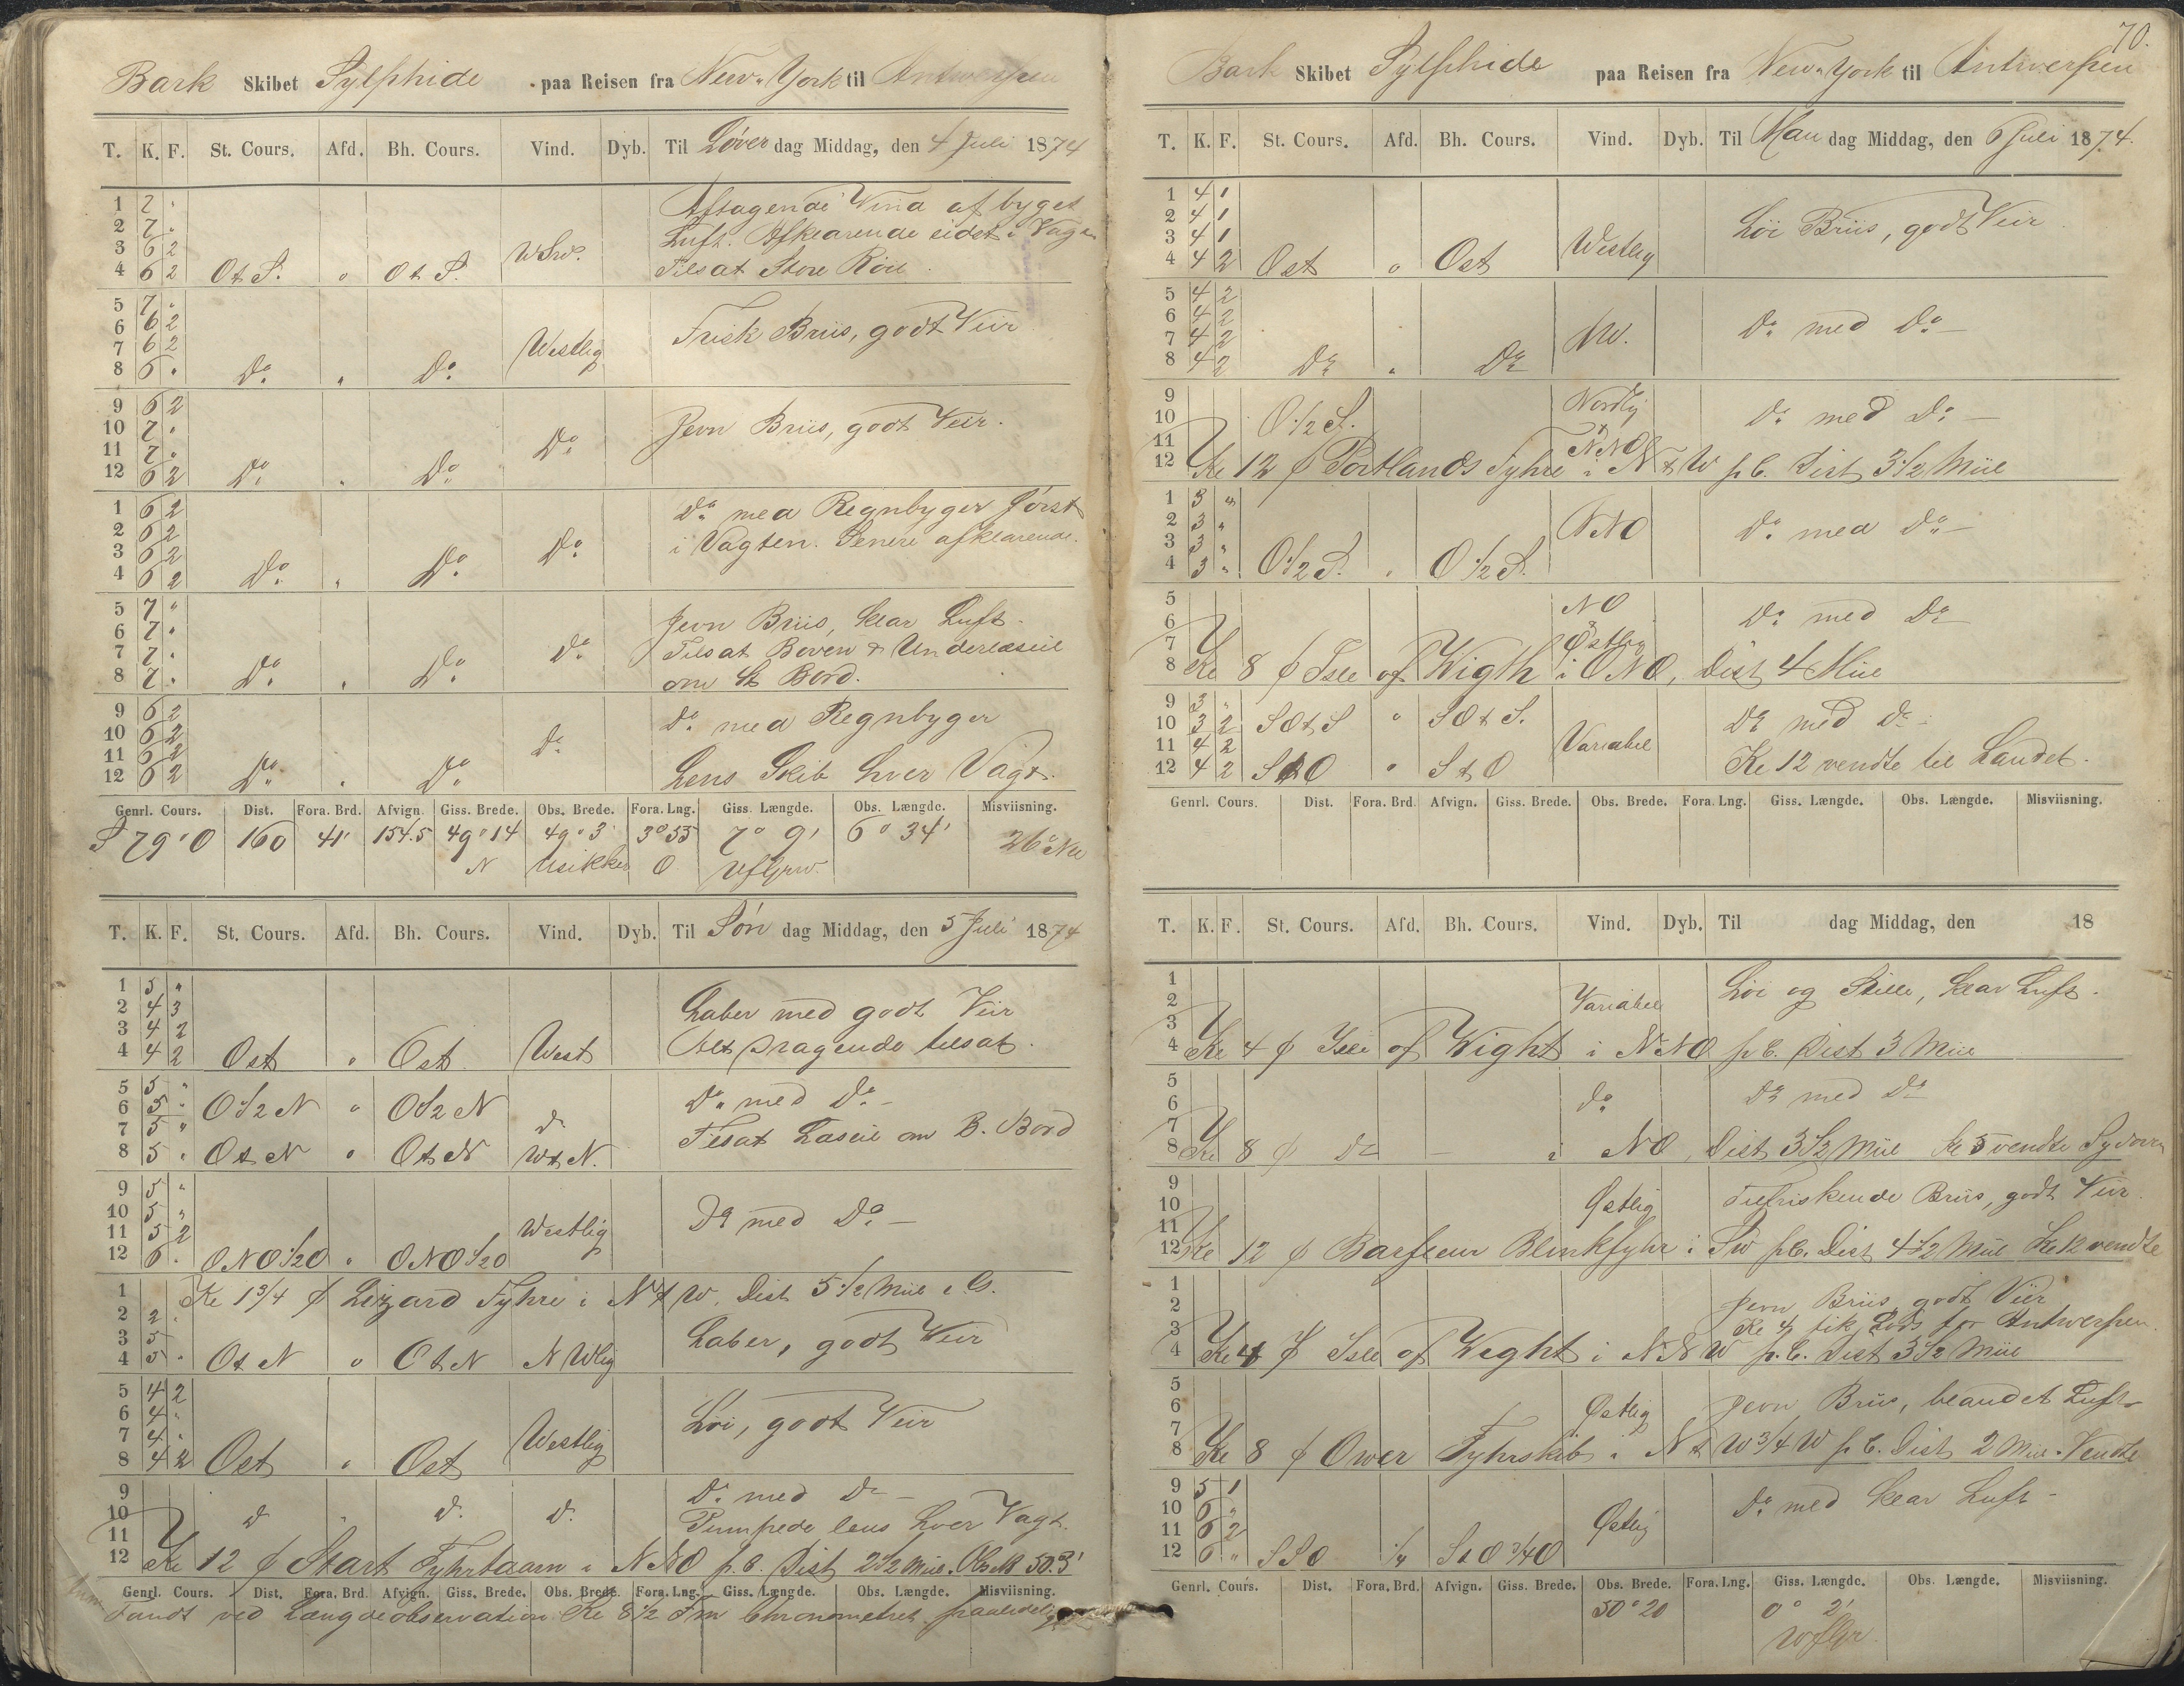 Bark Skibet Sylphide paa Reisen fra New-York til Antwerpen
T. K. F. St. Cours. Afd. Bh. Cours. Vind. Dyb. Til Löver dag Middag, den 4 Juli 1874
1 7 "
2 7 "
3 6 2
4 6 2 O t S. " O t S. WSW.
Aftagende Vind af byget
Luft. Afklarende sidst i Vagten
Tilsat Store Röil
5 7 "
6 6 2
7 6 2
8 6 " Do " Do Westlig
Frisk Briis, godt Veir
9 6 2
10 7 "
11 7 "
12 6 2 Do " Do Do
Jevn Briis, godt Veir.
1 6 2
2 6 2
3 6 2
4 6 2 Do " Do Do
Do med Regnbyger först
i Vagten. Senere afklarende.
5 7 "
6 7 "
7 7 "
8 7 " Do " Do Do
Jevn Briis, klar Luft.
Tilsat Boven & Underlæseil
om St Bord.
9 6 2
10 6 2
11 6 2
12 6 2 Do " Do Do
Do med Regnbyger
Lens Skib hver Vagt.
Genrl. Cours. Dist. Fora. Brd. Afvign. Giss. Brede. Obs. Brede. Fora. Lng. Giss. Længde. Obs. Længde. Misviisning.
S 79° O 160 41' 154.5 49° 14 49° 3' 3° 55 7° 9' 6° 34' 26° NW
N Usikker O
T. K. F. St. Cours. Afd. Bh. Cours. Vind. Dyb. Til Sön dag Middag, den 5 Juli 1874
1 5 "
2 4 3
3 4 2
4 4 2 Ost " Ost West
Laber med godt Veir
Alt Dragende tilsat.
5 5 "
6 5 " O 1/2 N " O 1/2 N do
7 5 "
8 5 " O t N " O t N W t N.
Do med Do
Tilsat Læseil om B. Bord
9 5 "
10 5 "
11 5 2
12 6 " ONO 1/2 O " ONO 1/2 O Westlig
Do med Do
1 Kl 1 3/4 p Lizard Fyhre i N t W. Dist 5 1/2 Miil e. G.
2 2 "
3 5 "
4 5 " O t N " O t N N Wlig
Laber, godt Veir
5 4 2
6 4 "
7 4 "
8 4 2 Ost " Ost Westlig
Löi, godt Veir
9
10 do " do do
11
Do med Do
Pumpede lens hver Vagt.
12 Kl 12 p Start Fyhrtaarn i NNO p. C. Dist 2 1/2 Miil. Obs. B 50.3'
Genrl. Cours. Dist. Fora. Brd. Afvign. Giss. Brede. Obs. Brede. Fora. Lng. Giss. Længde. Obs. Længde. Misviisning.
Fandt ved Længdeobservation Kl 8 1/2 Fm Chronometret
70.
Bark Skibet Sylphide paa Reisen fra New-York til Antwerpen
T. K. F. St. Cours. Afd. Bh. Cours. Vind. Dyb. Til Man dag Middag, den 6 Juli 1874.
1 4 1
2 4 1
3 4 1
4 4 2 Ost " Ost Westlig
Löi Briis, godt Veir
5 4 2
6 4 2
7 4 2
8 4 2 Do " Do NW.
Do med Do
9 Nordlig
10 O 1/2 S.
Do med Do
11 NNO
12 Kl 12 p Portlands Fyhre i N t W p C. Dist 3 1/2 Miil
1 3 "
2 3 "
3 3 "
4 3 " O 1/2 S. " O 1/2 S. NNO
Do med Do
5 NO
6
7 Østlig
Do med Do
8 Kl 8 p Isle of Wigth i ONO, Dist 4 Miil
9 3 "
10 3 2 SO t S " SO t S.
11 4 2
12 4 2 S t O " S t O Variabel
Do med Do
Kl 12 vendte til Landet.
Genrl. Cours. Dist. Fora. Brd. Afvign. Giss. Brede. Obs. Brede. Fora. Lng. Giss. Længde. Obs. Længde. Misviisning.
T. K. F. St. Cours. Afd. Bh. Cours. Vind. Dyb. Til dag Middag, den 18
1
2 Variabel
3
Löi og Stille, klar Luft.
4 Kl 4 p Isle of Wight i NNO p C. Dist 3 Miil
5
6 do
7
Do med Do
8 Kl 8 p Do – i NO, Dist 3 1/2 Miil Kl 5 vendte Sydover
9
10 Østlig
11
Tilfriskende Briis, godt Veir.
12 Kl 12 p Barfleur Blinkfyhr i SW p C. Dist 4 1/2 Miil Kl 12 vendte
1
2
3
Jevn Briis, godt Veir
Kl 4 fik Lods for Antwerpen.
4 Kl 4 p Isle of Wight i NNW p. C. Dist 3 1/2 Miil
5
6 Østlig
7
Jevn Briis, blandet Luft
8 Kl 8 p Ower Fyhrskib i N t W 3/4 W p C. Dist 2 Miil. Vendte
9 5 1
10 6 "
11 6 2
12 6 " SSO 1/4 S t O 3/4 O Østlig
Do med klar Luft
Genrl. Cours. Dist. Fora. Brd. Afvign. Giss. Brede. Obs. Brede. Fora. Lng. Giss. Længde. Obs. Længde. Misviisning.
50° 20 0° 2'